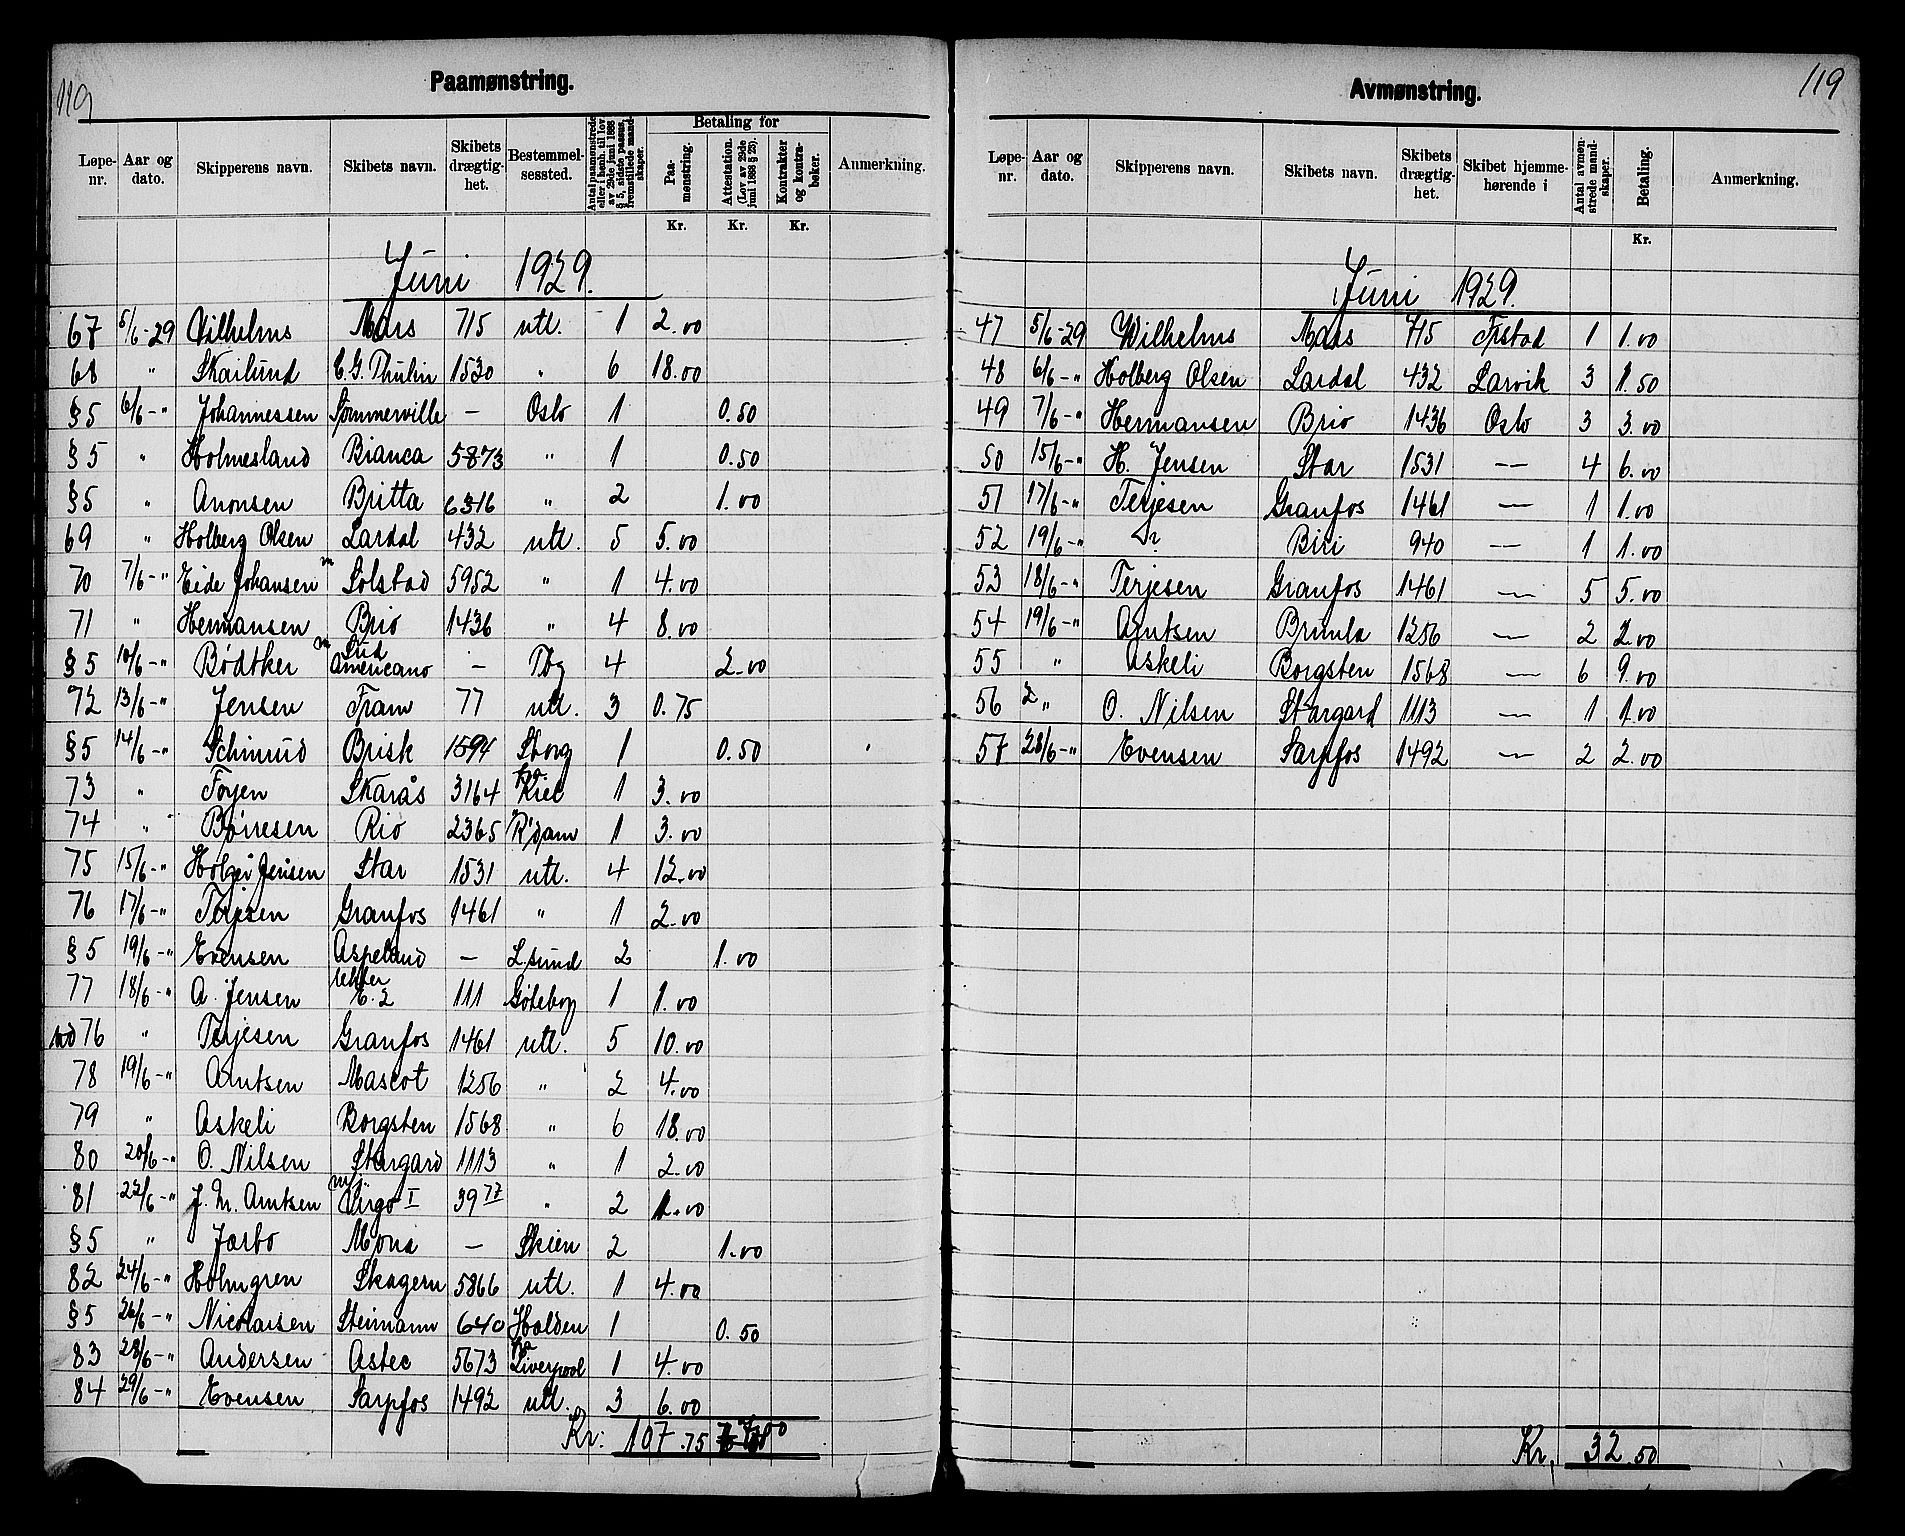 119
Paamønstring.
Løpe-nr. Aar og dato. Skipperens navn. Skibets navn. Skibets drægtig-het. Bestemmel-sessted. Antal paamønstrede eller i henh. til lov av 29de juni 1888 § 5, sidste passus, fremstillede mand-skaper. Betaling for Paa-mønstring. Attestation. (Lov av 29de juni 1888 § 23). Kontrakter og kontra-bøker. Anmerkning.
Kr. Kr. Kr.
Juni 1929.
67 5/6-29 Vilhelms Mars 715 utl. 1 2.00
68 " Skarlund C.G. Thulin 1530 " 6 18.00
§5 6/6-" Johannessen Sommerville — Oslo 1 0.50
§5 " Holmesland Bianca 5873 " 1 0.50
§5 " Anonsen Britta 6316 " 2 1.00
69 " Holberg Olsen Lardal 432 utl. 5 5.00
70 7/6-" Eide Johansen m Solstad 5952 " 1 4.00
71 " Hermansen Brio 1436 " 4 8.00
§5 10/6-" Bødtker m Sud Americano — Tbg 4 2.00
72 13/6-" Jensen Fram 77 utl. 3 0.75
§5 14/6-" Schmud Brisk 1594 Sborg 1 0.50
73 " Foyen Skarås 3164 fra Kiel 1 3.00
74 " Børresen Rio 2365 R'dam 1 3.00
75 15/6-" Holger Jensen Star 1531 utl. 4 12.00
76 17/6-" Terjesen Granfos 1461 " 1 2.00
§5 19/6-" Evensen Aspelund — L.sund 2 1.00
77 18/6-" A. Jensen lekter E.2 111 Göteborg 1 1.00
ad 76 " Terjesen Granfos 1461 utl. 5 10.00
78 19/6-" Arntsen Mascot 1256 " 2 4.00
79 " Askeli Borgsten 1568 " 6 18.00
80 20/6-" O. Nilsen Stargard 1113 " 1 2.00
81 22/6-" J. M. Arntsen m/j. Virgo I 39 77 " 2 1.00
§5 " Jarbo Mona — Skien 2 1.00
82 24/6-" Holmgren Skagern 5866 utl. 1 4.00
§5 26/6-" Nicolaisen Steimann 640 Halden 1 0.50
83 28/6-" Andersen Astec 5673 fra Liverpool 1 4.00
84 29/6-" Evensen Sarpfos 1492 utl. 3 6.00
Kr: 107.75
119
Avmønstring.
Løpe-nr. Aar og dato. Skipperens navn. Skibets navn. Skibets drægtig-het. Skibet hjemme-hørende i Antal avmøn-strede mand-skaper. Betaling. Anmerkning.
Kr.
Juni 1929.
47 5/6-29 Wilhelms Mars 715 Fr.stad 1 1.00
48 6/6-" Holberg Olsen Lardal 432 Larvik 3 1.50
49 7/6-" Hermansen Brio 1436 Oslo 3 3.00
50 15/6-" H. Jensen Star 1531 — 4 6.00
51 17/6-" Terjesen Granfos 1461 — 1 1.00
52 19/6-" Biri 940 — 1 1.00
53 18/6-" Terjesen Granfos 1461 — 5 5.00
54 19/6-" Arntsen Brunla 1256 — 2 2.00
55 " Askeli Borgsten 1568 — 6 9.00
56 2 " O. Nilsen Stargard 1113 — 1 1.00
57 28/6-" Evensen Sarpfos 1492 — 2 2.00
Kr. 32.50